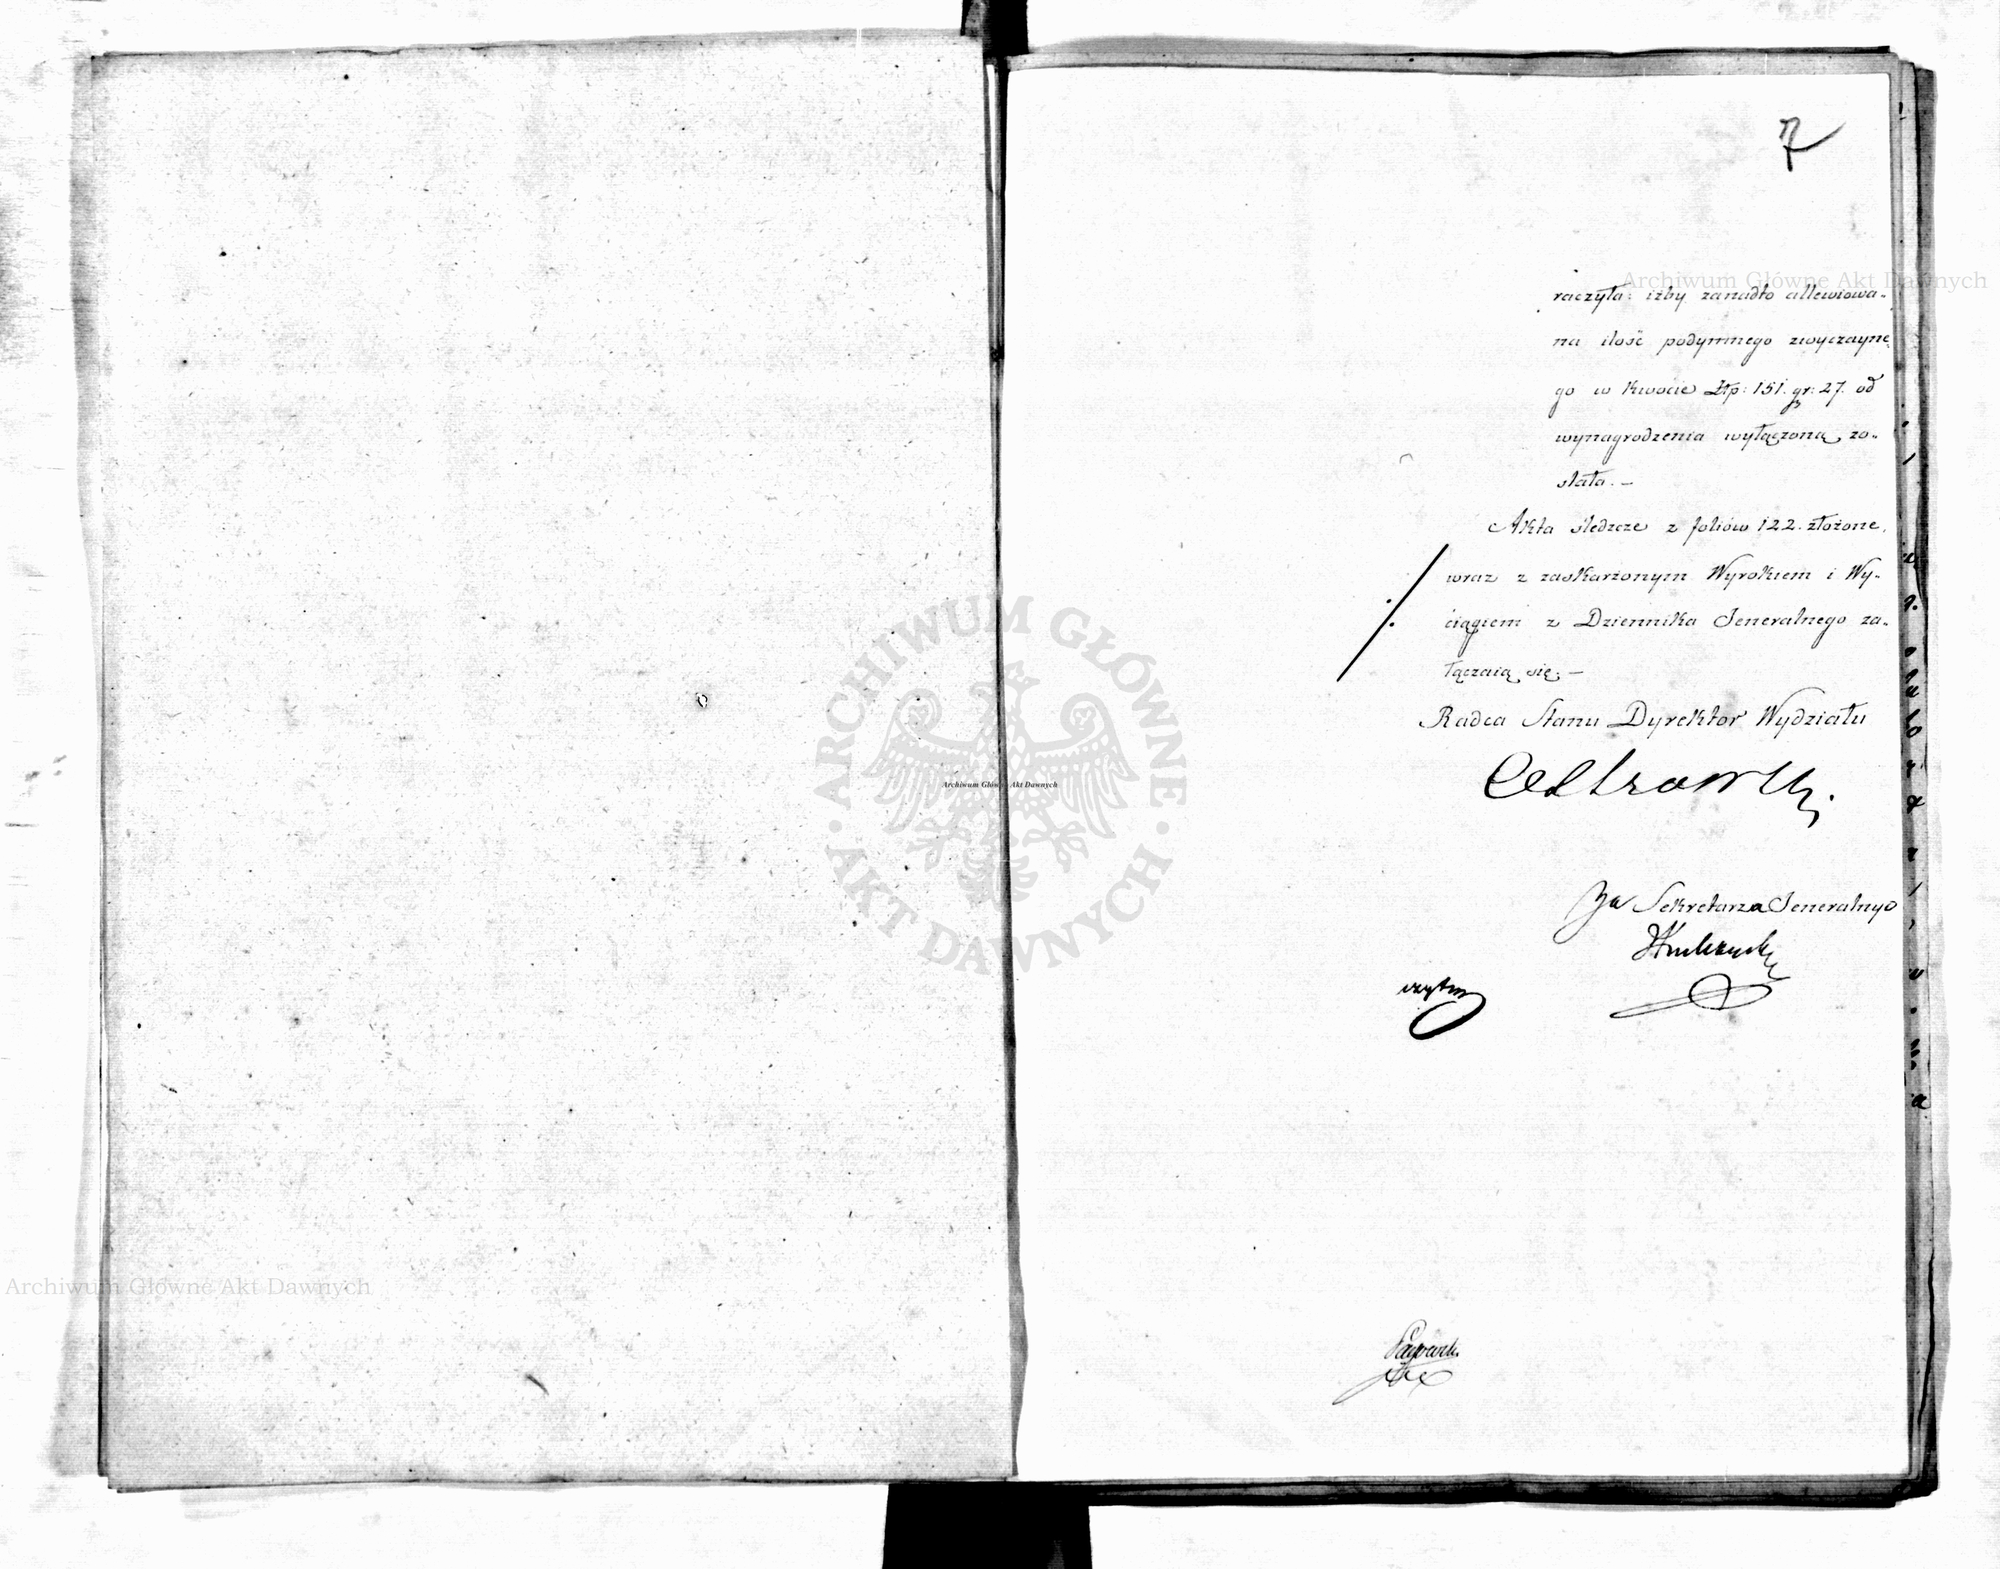 7
raczyła: iżby zanadto allewiowa-
na ilość podymnego zwyczayne-
go w kwocie Złp: 151. gr: 27. od
wynagrodzenia wyłączoną zo-
stała. –
Akta śledcze z foliów 122. złożone,
wraz z zaskarżonym Wyrokiem i Wy-
ciągiem z Dziennika Generalnego za-
łączaią się; –
Radca Stanu Dyrektor Wydziału
Za Sekretarza Generalnego
czytał
Archiwum Główne Akt Dawnych
Archiwum Główne Akt Dawnych
Archiwum Główne Akt Dawnych
ARCHIWUM GŁÓWNE
AKT DAWNYCH